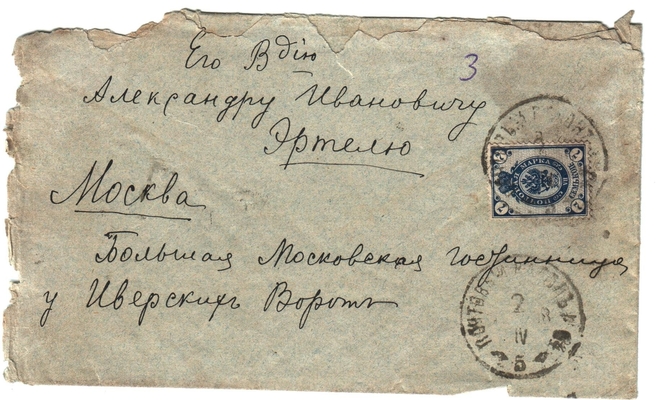 Его Вдію
3
Александру Ивановичу
Эртелю
Москва
Большая Московская гостинница
у Иверскихъ Воротъ
МАРКА
7
7
2
IV
5